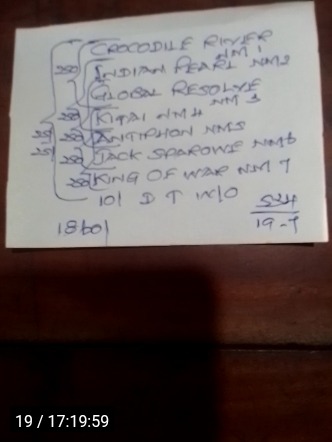 CROCODILE RIVER
NM 1
250 INDIAN PEARL NM2
GLOBAL RESOLVE
NM 3
KITAI NM4
250 ANTIPHON NM5
250 JACK SPAROWE NM6
250 KING OF WAR NM 7
101 D T 1x10
524
19-7
1860/
19 / 17:19:59